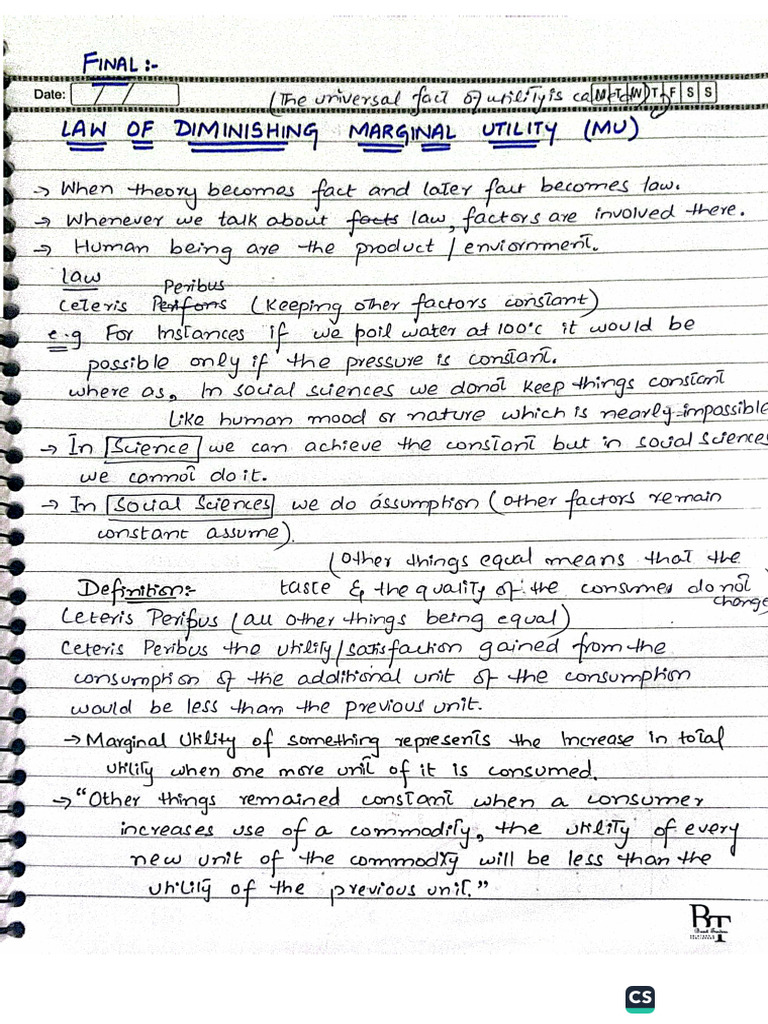 FINAL :-
Date: / / M T W T F S S
(The universal fact of utility is called)
LAW OF DIMINISHING MARGINAL UTILITY (MU)
→ When theory becomes fact and later fact becomes law.
→ Whenever we talk about facts law, factors are involved there.
→ Human being are the product / enviornment.
Law
Peribus
Ceteris (Keeping other factors constant)
e.g For Instances if we boil water at 100°c it would be
possible only if the pressure is constant.
where as, In social sciences we donot keep things constant
Like human mood or nature which is nearly impossible
→ In Science we can achieve the constant but in social sciences
we cannot do it.
→ In Social Sciences we do assumption (other factors remain
constant assume).
(Other things equal means that the
Definition:- taste & the quality of the consumer do not
change
Ceteris Peribus (all other things being equal)
Ceteris Peribus the utility/satisfaction gained from the
consumption of the additional unit of the consumption
would be less than the previous unit.
→ Marginal Utility of something represents the Increase in total
utility when one more unit of it is consumed.
→ "Other things remained constant when a consumer
increases use of a commodity, the utility of every
new unit of the commodity will be less than the
utility of the previous unit."
BT
CS